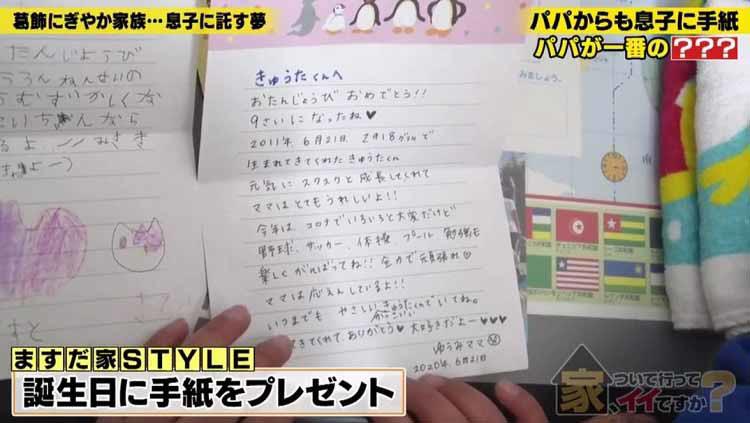 葛飾にぎやか家族…息子に託す夢
パパからも息子に手紙
パパが一番の???
たんじょうび
むずかしくな
ちゃんから
きゅうたくんへ
おたんじょうび おめでとう!!
9さいになったね♥
2011年 6月21日 2918グラムで
生まれてきてくれた きゅうたくん
元気に スクスクと 成長してくれて
ママは とても うれしいよ!!
今年は、コロナで いろいろと 大変だけど
野球、サッカー、体操、プール 勉強も
楽しく がんばってね!! 全力で 頑張れ♡
ママは 応えんしているよ!!
いつまでも やさしい きゅうたくんで いてね。
かっこいい
きてくれて、ありがとう♥ 大好きだよー♥♥♥
ゆうみママ
2020年、6月21日
ますだ家STYLE
誕生日に手紙をプレゼント
家、ついて行ってイイですか?